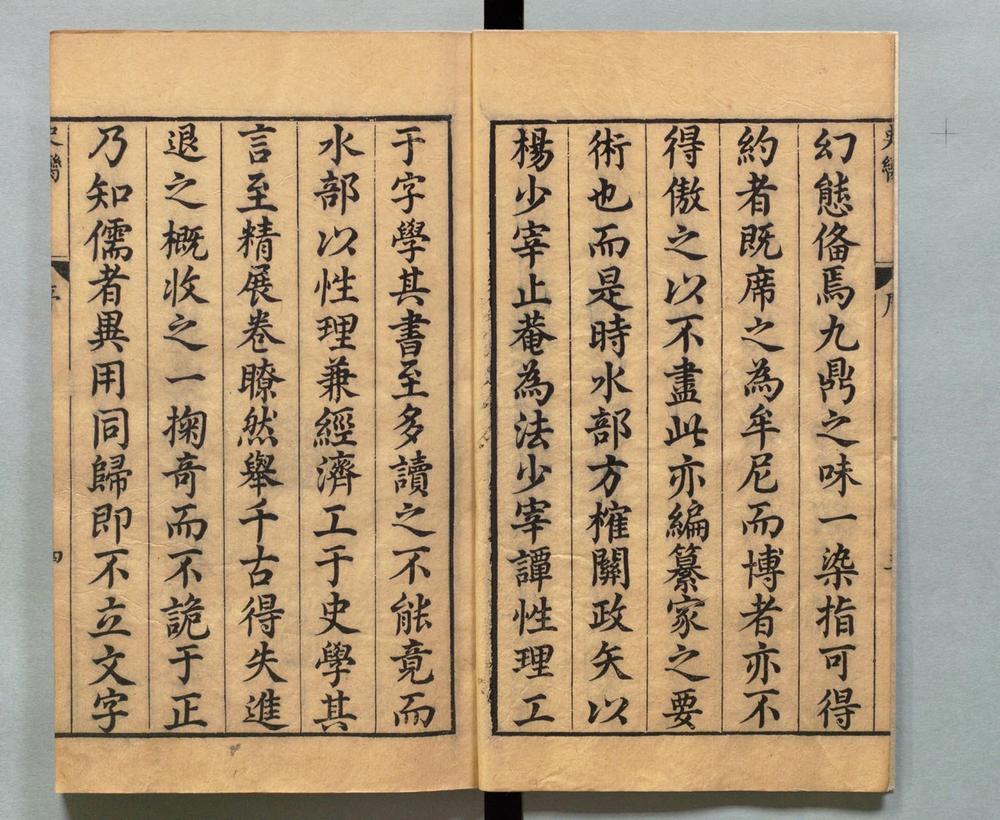 幻態俻焉九鼎之味一染指可得
約者既席之為牟尼而博者亦不
得傲之以不盡此亦編纂家之要
術也而是時水部方榷關政矢以
楊少宰止菴為法少宰譚性理工
于字學其書至多讀之不能竟而
水部以性理兼經濟工于史學其
言至精展卷瞭然舉千古得失進
退之概收之一掬奇而不詭于正
乃知儒者異用同歸即不立文字
四